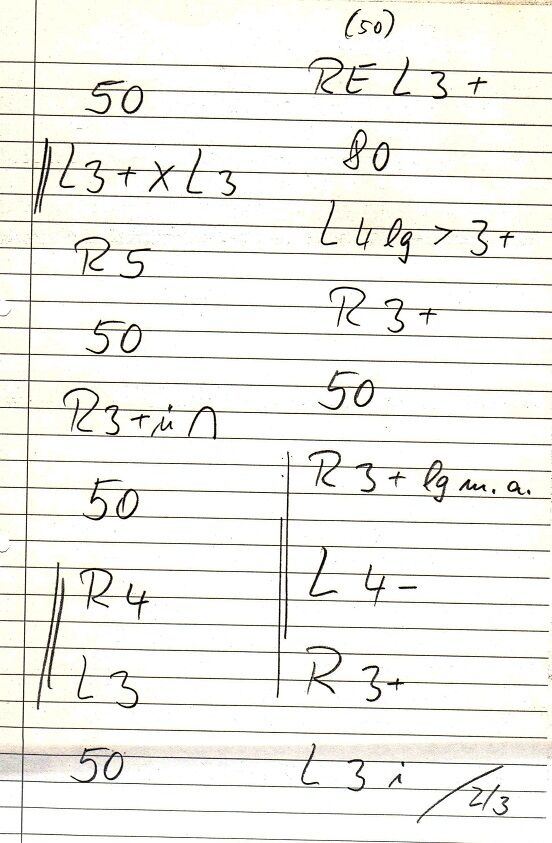 50
L3+ X L3
R5
50
R3+ in ∩
50
R4
L3
50
(50)
RE L3+
80
L4 lg > 3+
R3+
50
R3+ lg m.a.
L4-
R3+
L3 i
2/3